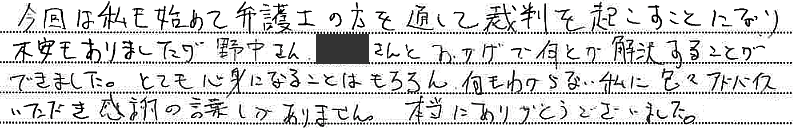 今回は私も始めて弁護士の方を通して裁判を起こすことになり
不安もありましたが 野中さん、 さんとおかげで何とか解決することが
できました。とても心身になることはもちろん 何もわからない私に色々アドバイス
いただき感謝の言葉しかありません。本当にありがとうございました。